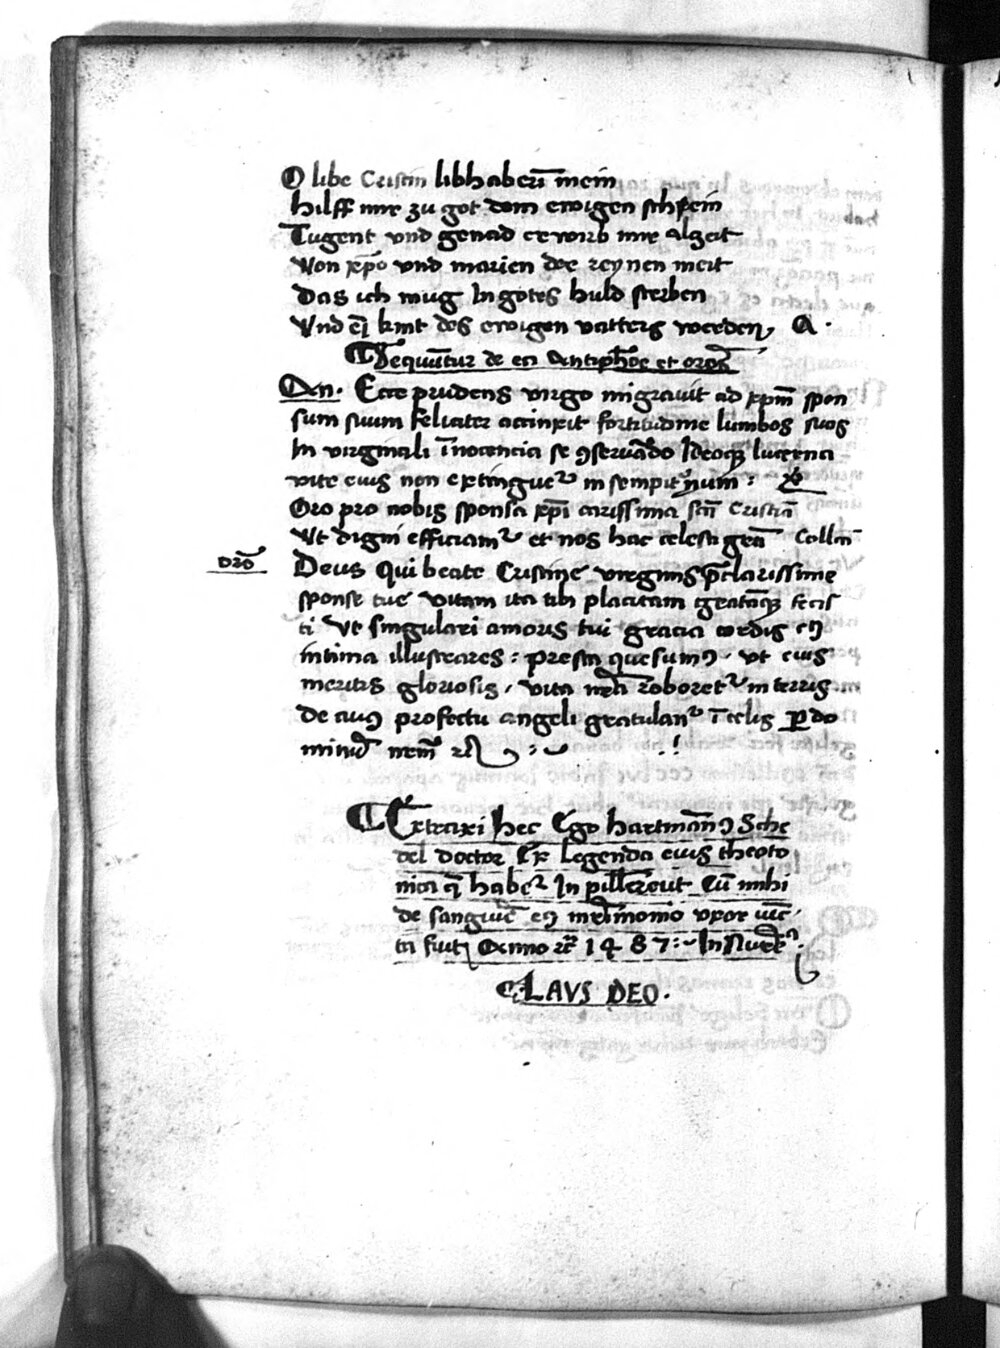 O libe Cristin libhaberī mein
hilff mir zu got dem ewigen schrein
Tugent vnd genad erwirb mir alzeit
Von xp̄o vnd marien der reynen meit
Das ich mug In gotes huld sterben
Vnd ein kint des ewigen vatters werden, A.
Sequūtur de ea Antiphōe et orōes
An. Ecce prudens virgo migravit ad xp̄m spon
sum suum feliciter accinxit fortitudine lumbos suos
In virginali īnocencia se ꝯservādo Ideoqꝫ lucerna
vite eius non extinguetᷣ in sempiternum: ꝟ
Ora pro nobis sponsa xp̄i carissima scā Cristiā
Vt digni efficiamᷣ et nos hac celesti gēā Collcā
orō Deus qui beate Cristine virginis p̄clarissime
sponse tue vitam ita tibi placitam gratāqꝫ fecis
ti Vt singulari amoris tui gracia cordis eꝯ
intima illustrares: presta quesumꝯ. vt eius
meritis gloriosis, vita nr̄a roboretᷣ in terris
de cuiꝯ profectu angeli gratulanᷣ ī celis ꝑ do
minū nr̄m
Extraxi hec Ego hartmānꝯ Sche
del doctor Ex legenda eius theoto
nica q̄ habetᷣ In pillenreut Cū mihi
de sanguīe eꝯ mr̄imonio vxor iūc
ta fuit Anno 1487: In Nurēꝯ.
LAVS DEO.